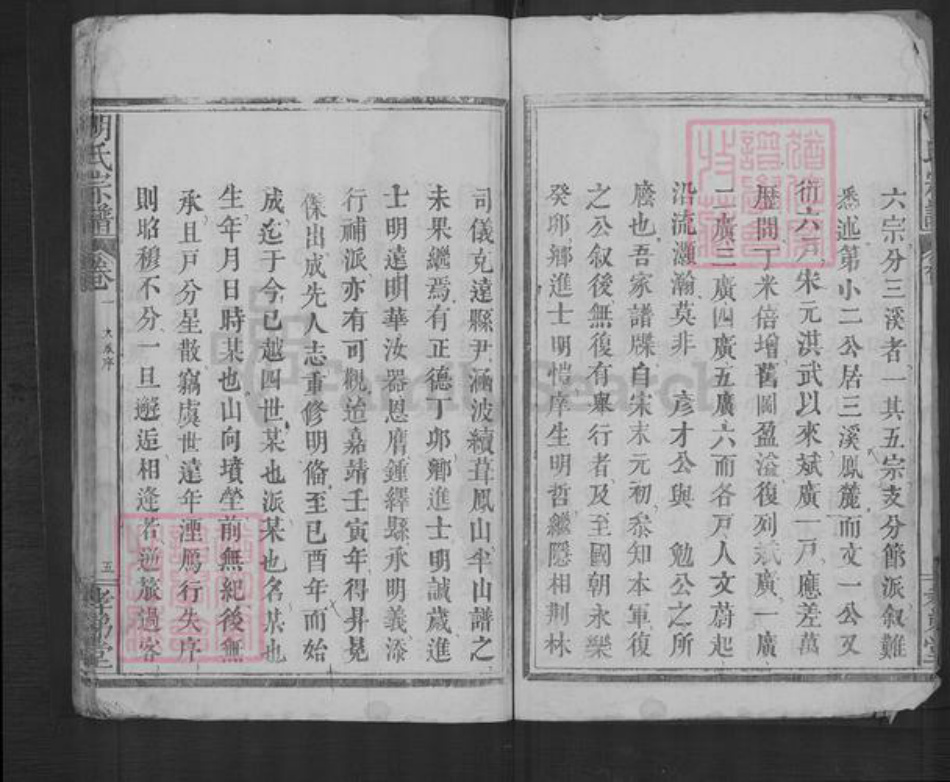 六宗分三溪者一其五宗支分節派叙難
悉述第小二公居三溪鳳麓而文一公又
衍六戸宋元洪武以來斌廣一戸應差萬
歷間丁米倍增舊圖盈溢復列斌廣一廣
二廣三廣四廣五廣六而各戸人文蔚起
沿流灝瀚莫非 彦才公與 勉公之所
廕也吾家譜牒自宋末元初叅知本軍復
之公叙後無復有舉行者及至國朝永樂
癸卯鄉進士明愷庠生明哲繼隱相荆林
司儀克達縣尹涵波續葺鳳山半山譜之
未果繼焉有正德丁卯鄉進士明誠歲進
士明達明華汝器恩膺鍾繹縣承明義添
行補派亦有可觀迨嘉靖壬寅年得昇晃
傑出成先人志重修明脩至已酉年而始
成迄于今已越四世某也派某也名某也
生年月日時某也山向墳塋前無紀後無
承且戸分星散竊虞世遠年湮鴈行失序
則昭穆不分一旦邂逅相逢若逆旅過客
胡氏宗譜
卷一
大成序
五
孝弟堂
FamilySearch